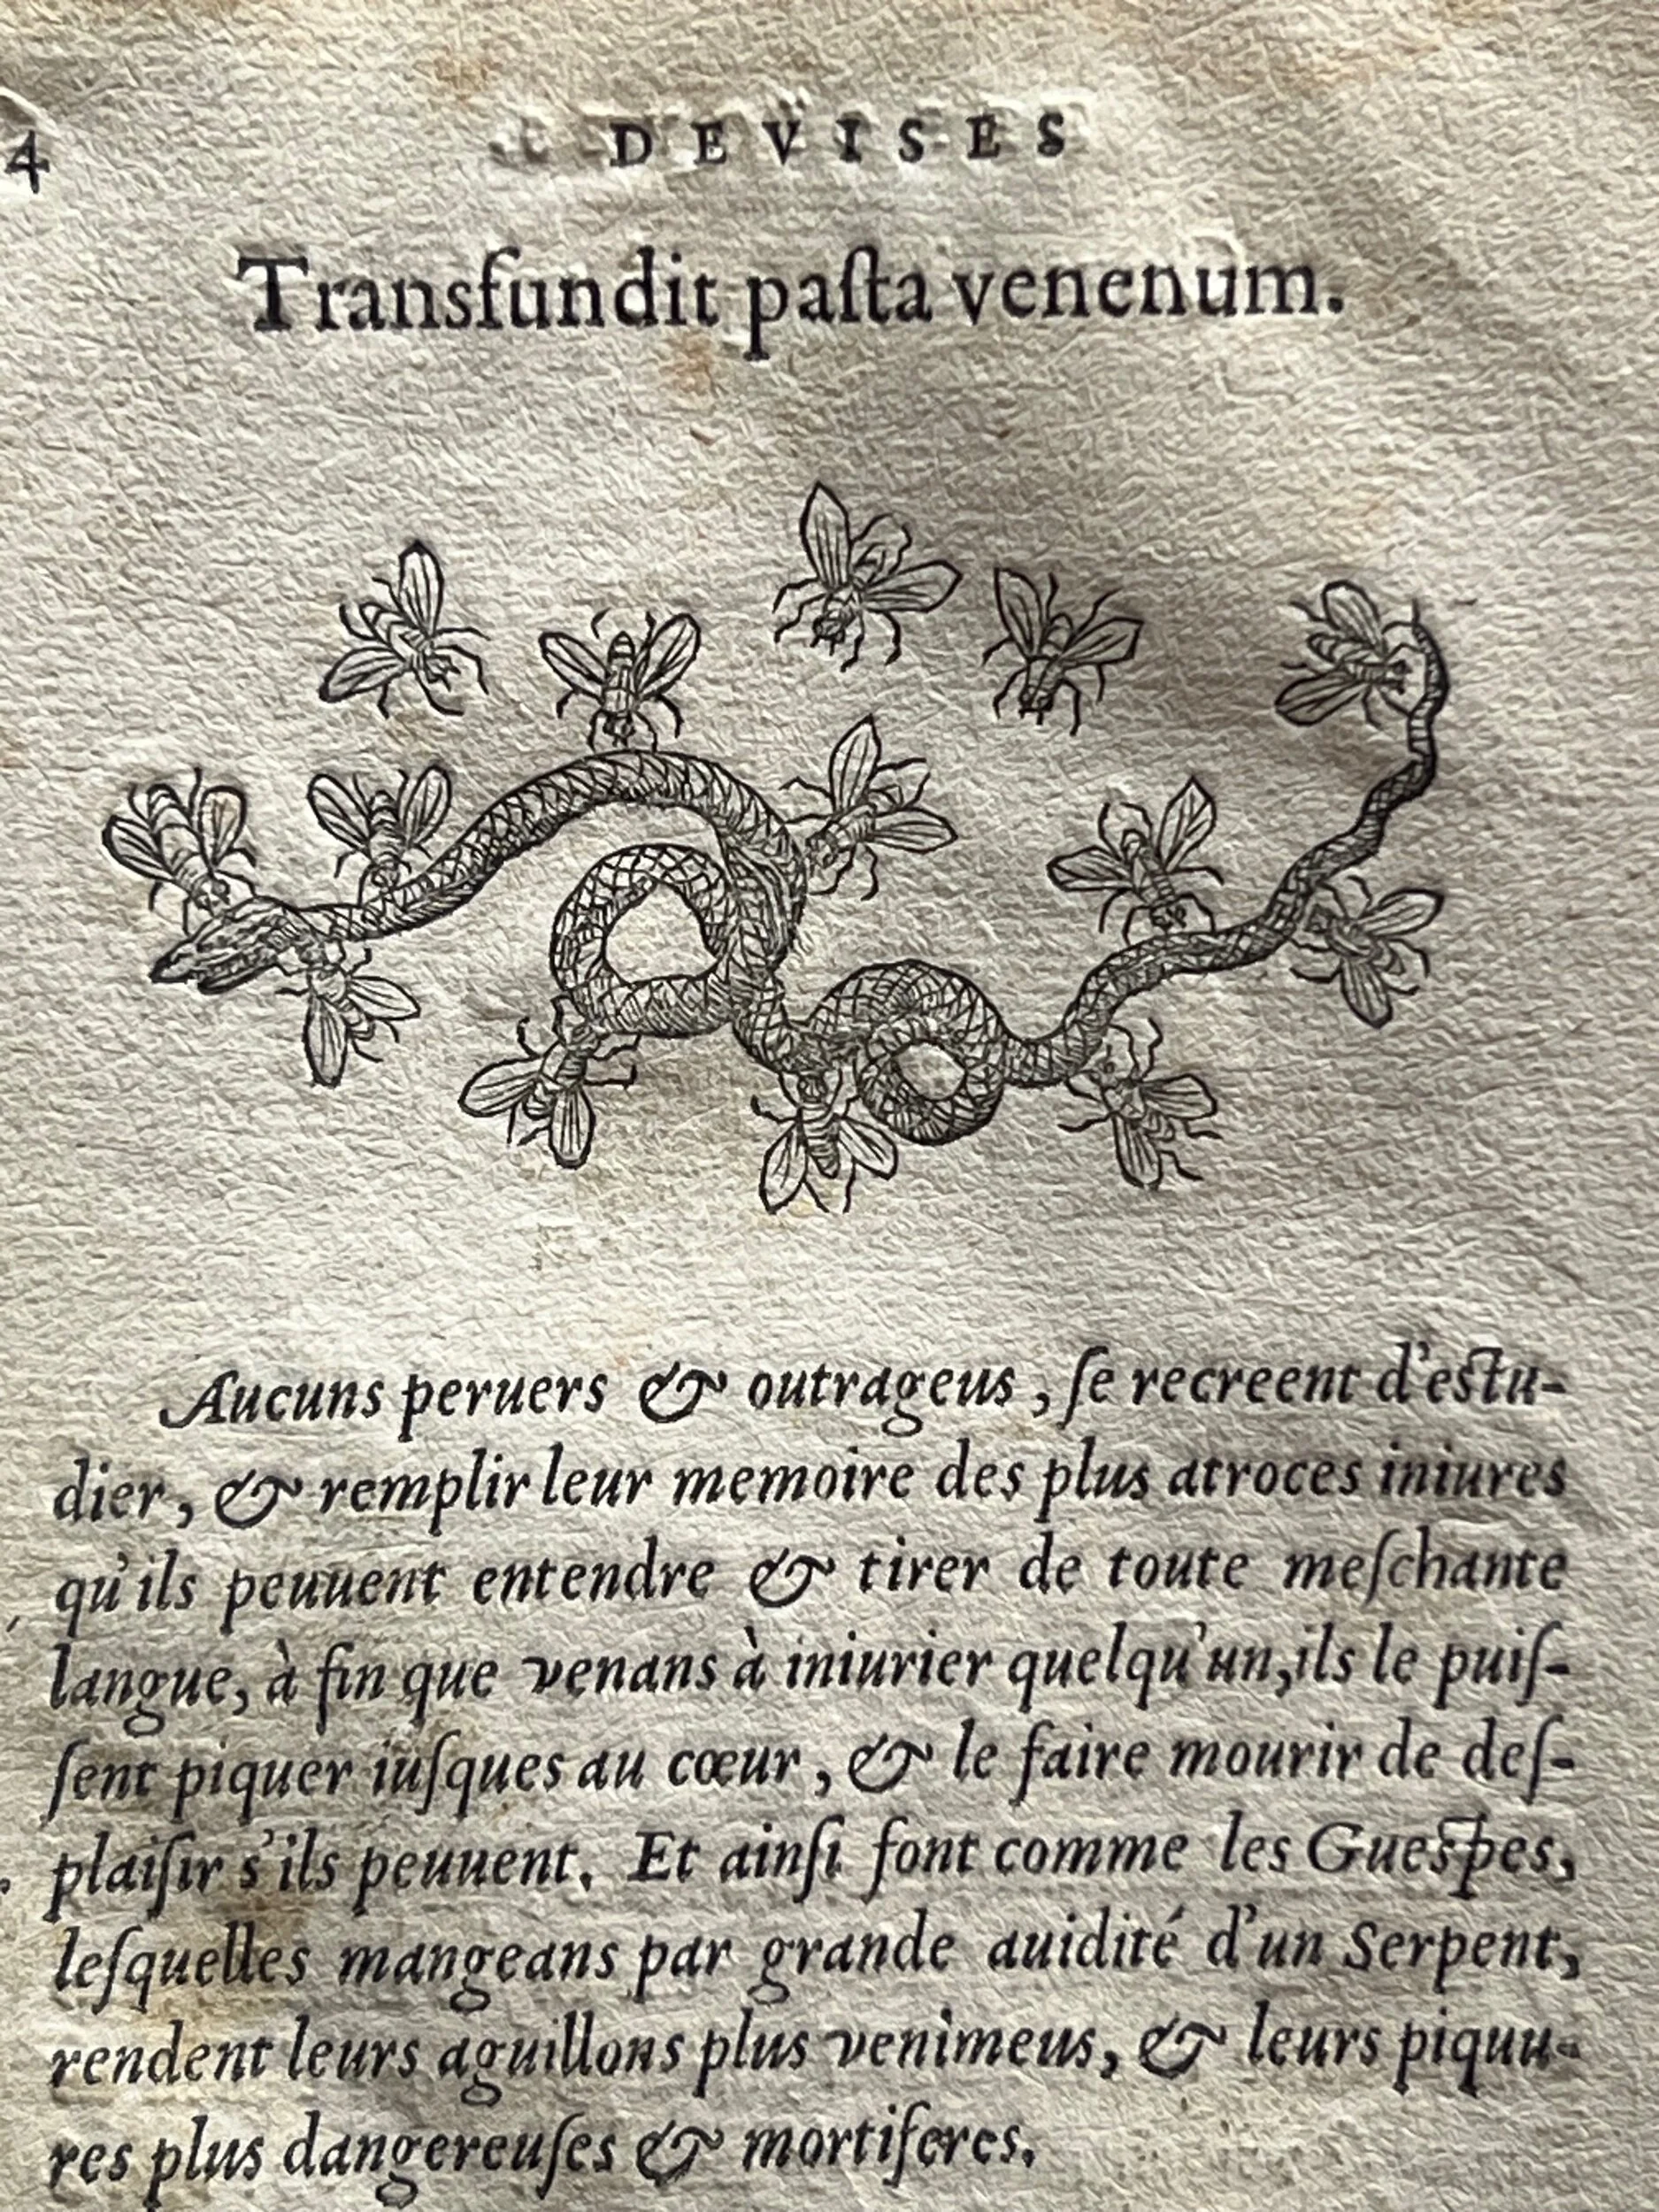 4 DEVISES
Transfundit paſta venenum.
Aucuns peruers & outrageus, ſe recreent d'eſtu-
dier, & remplir leur memoire des plus atroces iniures
qu'ils peuuent entendre & tirer de toute meſchante
langue, à fin que venans à iniurier quelqu'un, ils le puiſ-
ſent piquer iuſques au cœur, & le faire mourir de deſ-
plaiſir s'ils peuuent. Et ainſi font comme les Gueſpes,
leſquelles mangeans par grande auidité d'un Serpent,
rendent leurs aguillons plus venimeus, & leurs piquu-
res plus dangereuſes & mortiferes.